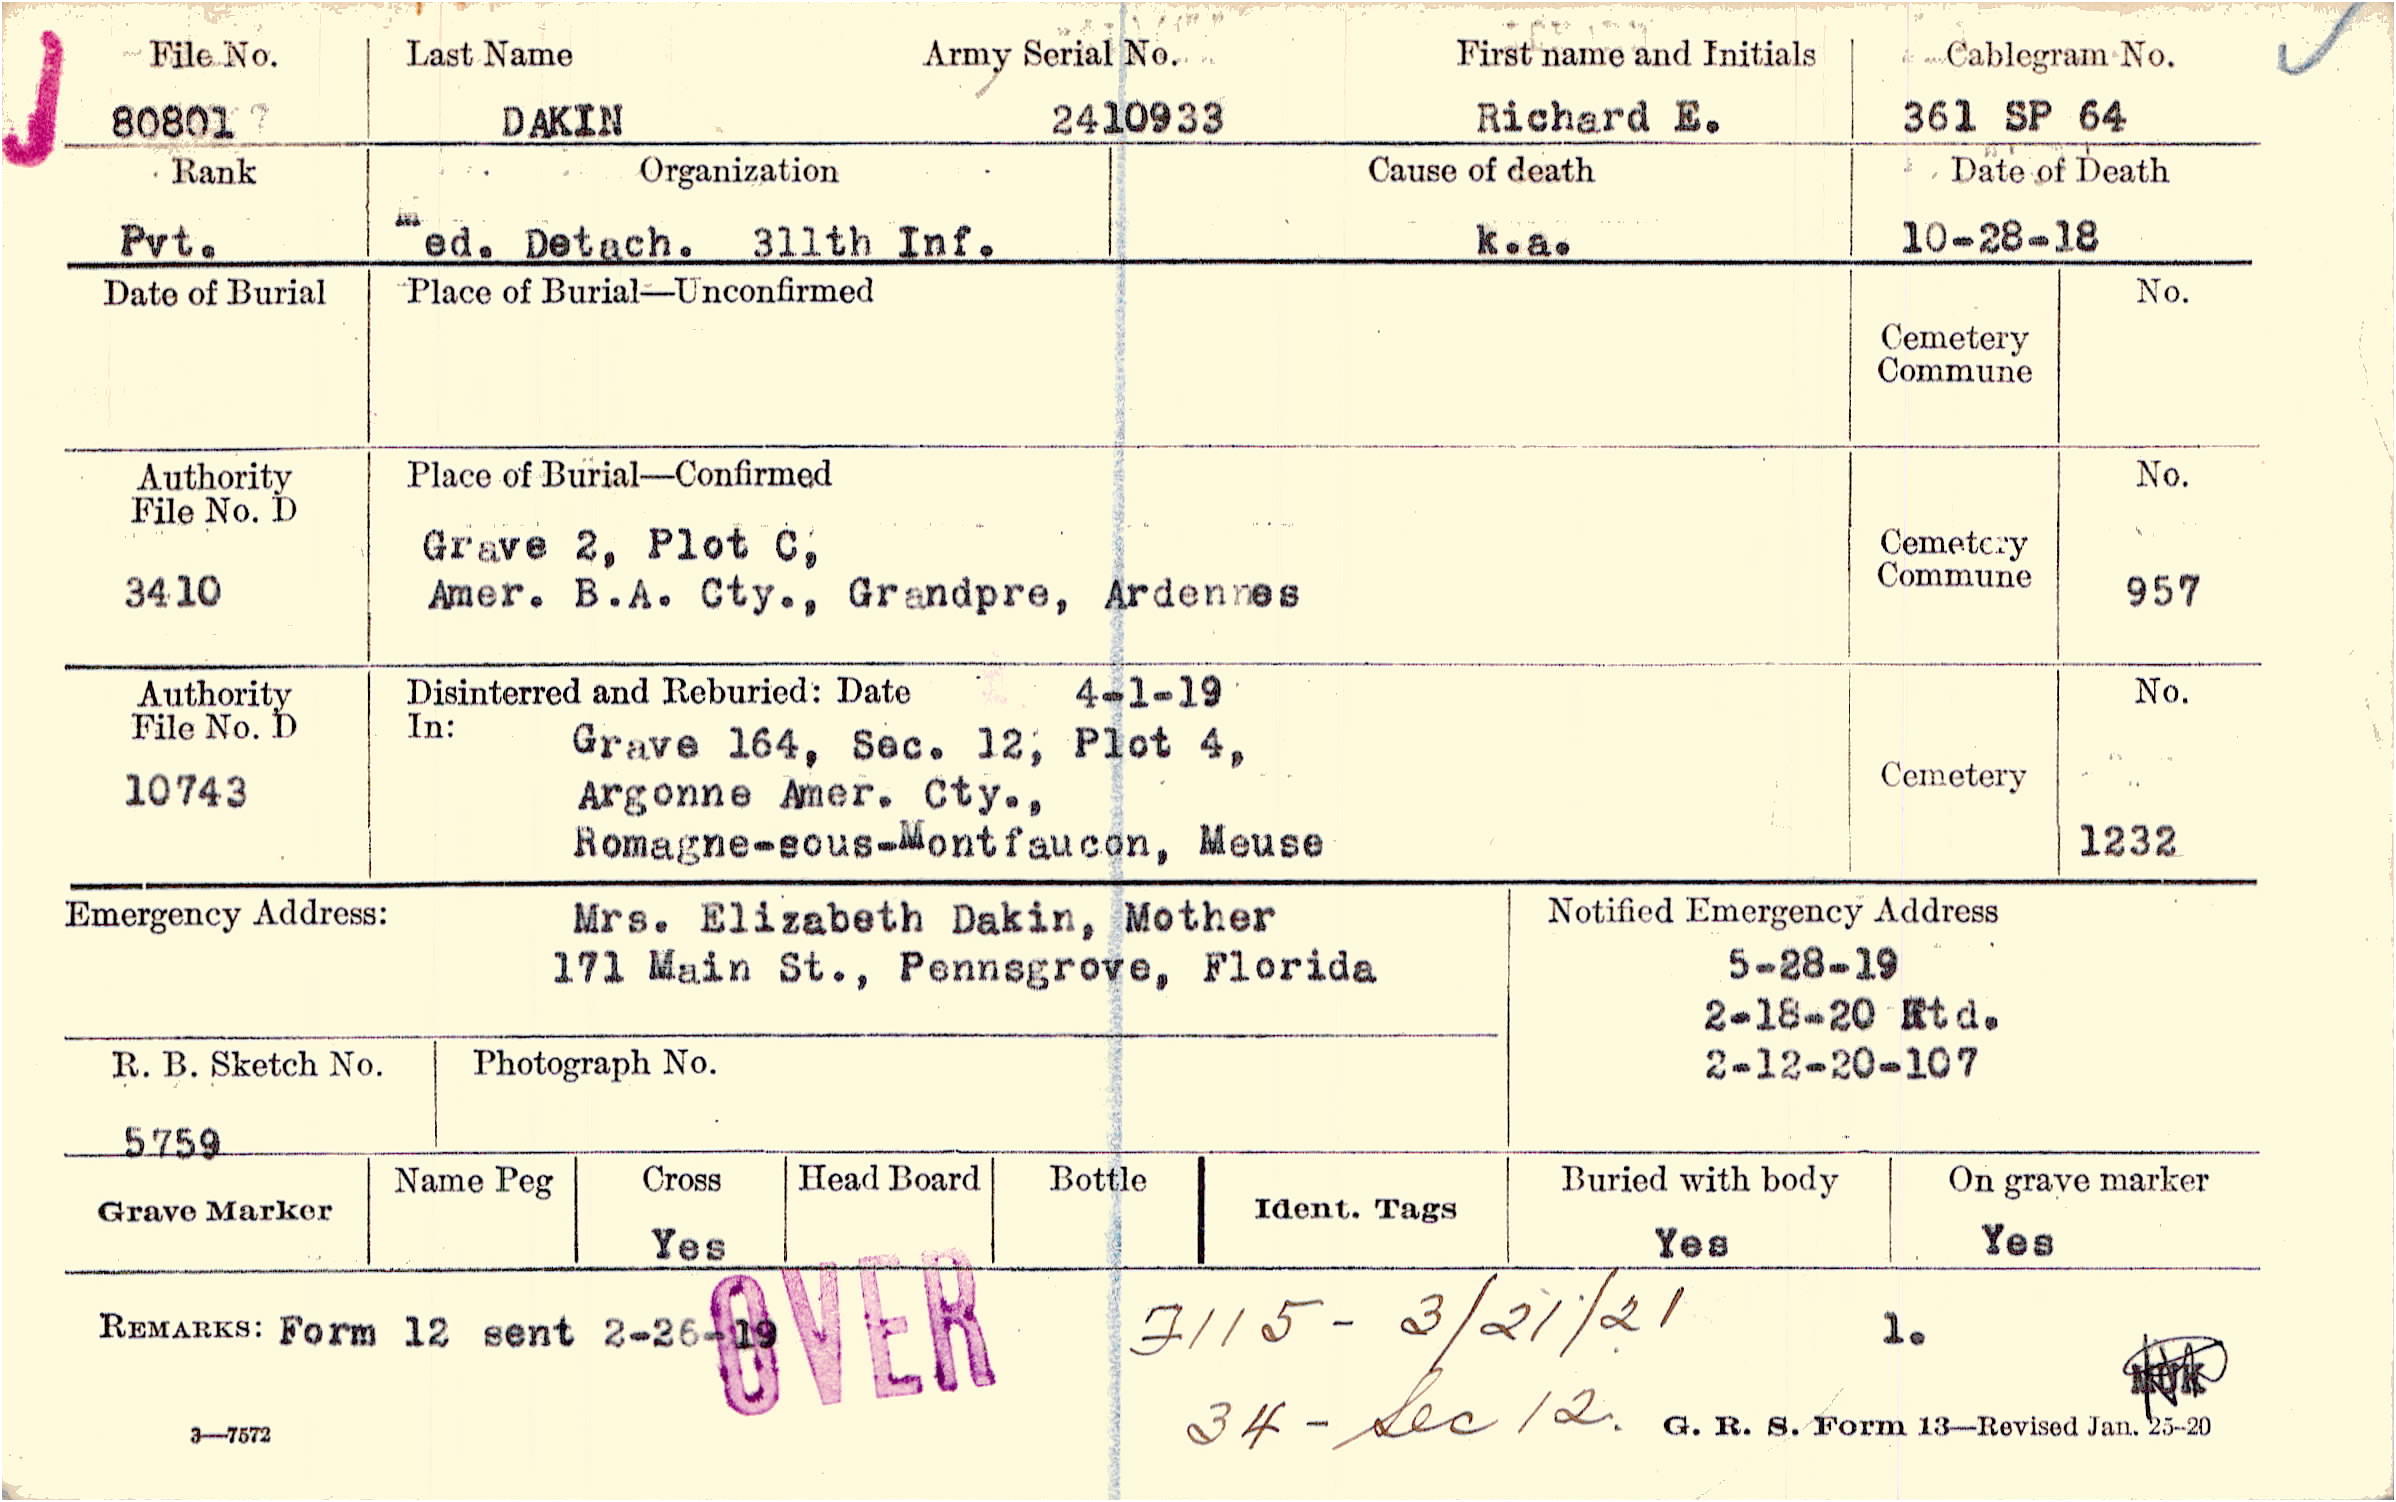 File No. Last Name Army Serial No. First name and Initials Cablegram No.
80801 DAKIN 2410933 Richard E. 361 SP 64
Rank Organization Cause of death Date of Death
Pvt. med. Detach. 311th Inf. k.a. 10-28-18
Date of Burial Place of Burial—Unconfirmed No.
Cemetery
Commune
Authority Place of Burial—Confirmed No.
File No. D
Grave 2, Plot C,
Cemetery
Commune
3410 Amer. B.A. Cty., Grandpre, Ardennes 957
Authority Disinterred and Reburied: Date 4-1-19 No.
File No. D In: Grave 164, Sec. 12, Plot 4,
10743 Argonne Amer. Cty., Cemetery
Romagne-sous-Montfaucon, Meuse 1232
Emergency Address: Mrs. Elizabeth Dakin, Mother Notified Emergency Address
171 Main St., Pennsgrove, Florida 5-28-19
2-18-20 Rtd.
R. B. Sketch No. Photograph No. 2-12-20-107
5759
Grave Marker Name Peg Cross Head Board Bottle Ident. Tags Buried with body On grave marker
Yes Yes Yes
OVER
REMARKS: Form 12 sent 2-26-19 7115 - 3/21/21 1.
34 - Sec 12.
3—7572 G. R. S. Form 13—Revised Jan. 25-20